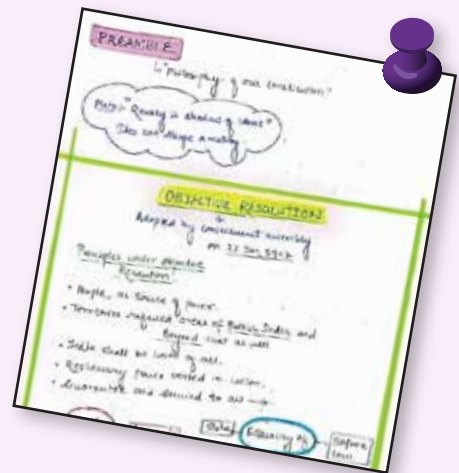 PREAMBLE
"philosophy of our constitution"
Plato:- "Reality is shadow of ideas"
Idea can shape a reality
OBJECTIVE RESOLUTION
Adopted by constituent assembly
on 22 Jan, 1947
Principles under objective
Resolution
• People, as source of power.
• Territories required areas of British India and
Beyond that as well
• India shall be land of all.
• Residuary power vested in union.
• Guarantee and secured to all →
Status
Equality of
before law